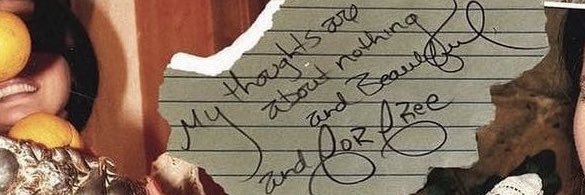 My thoughts are
about nothing
and Beautiful
and FOR FREE